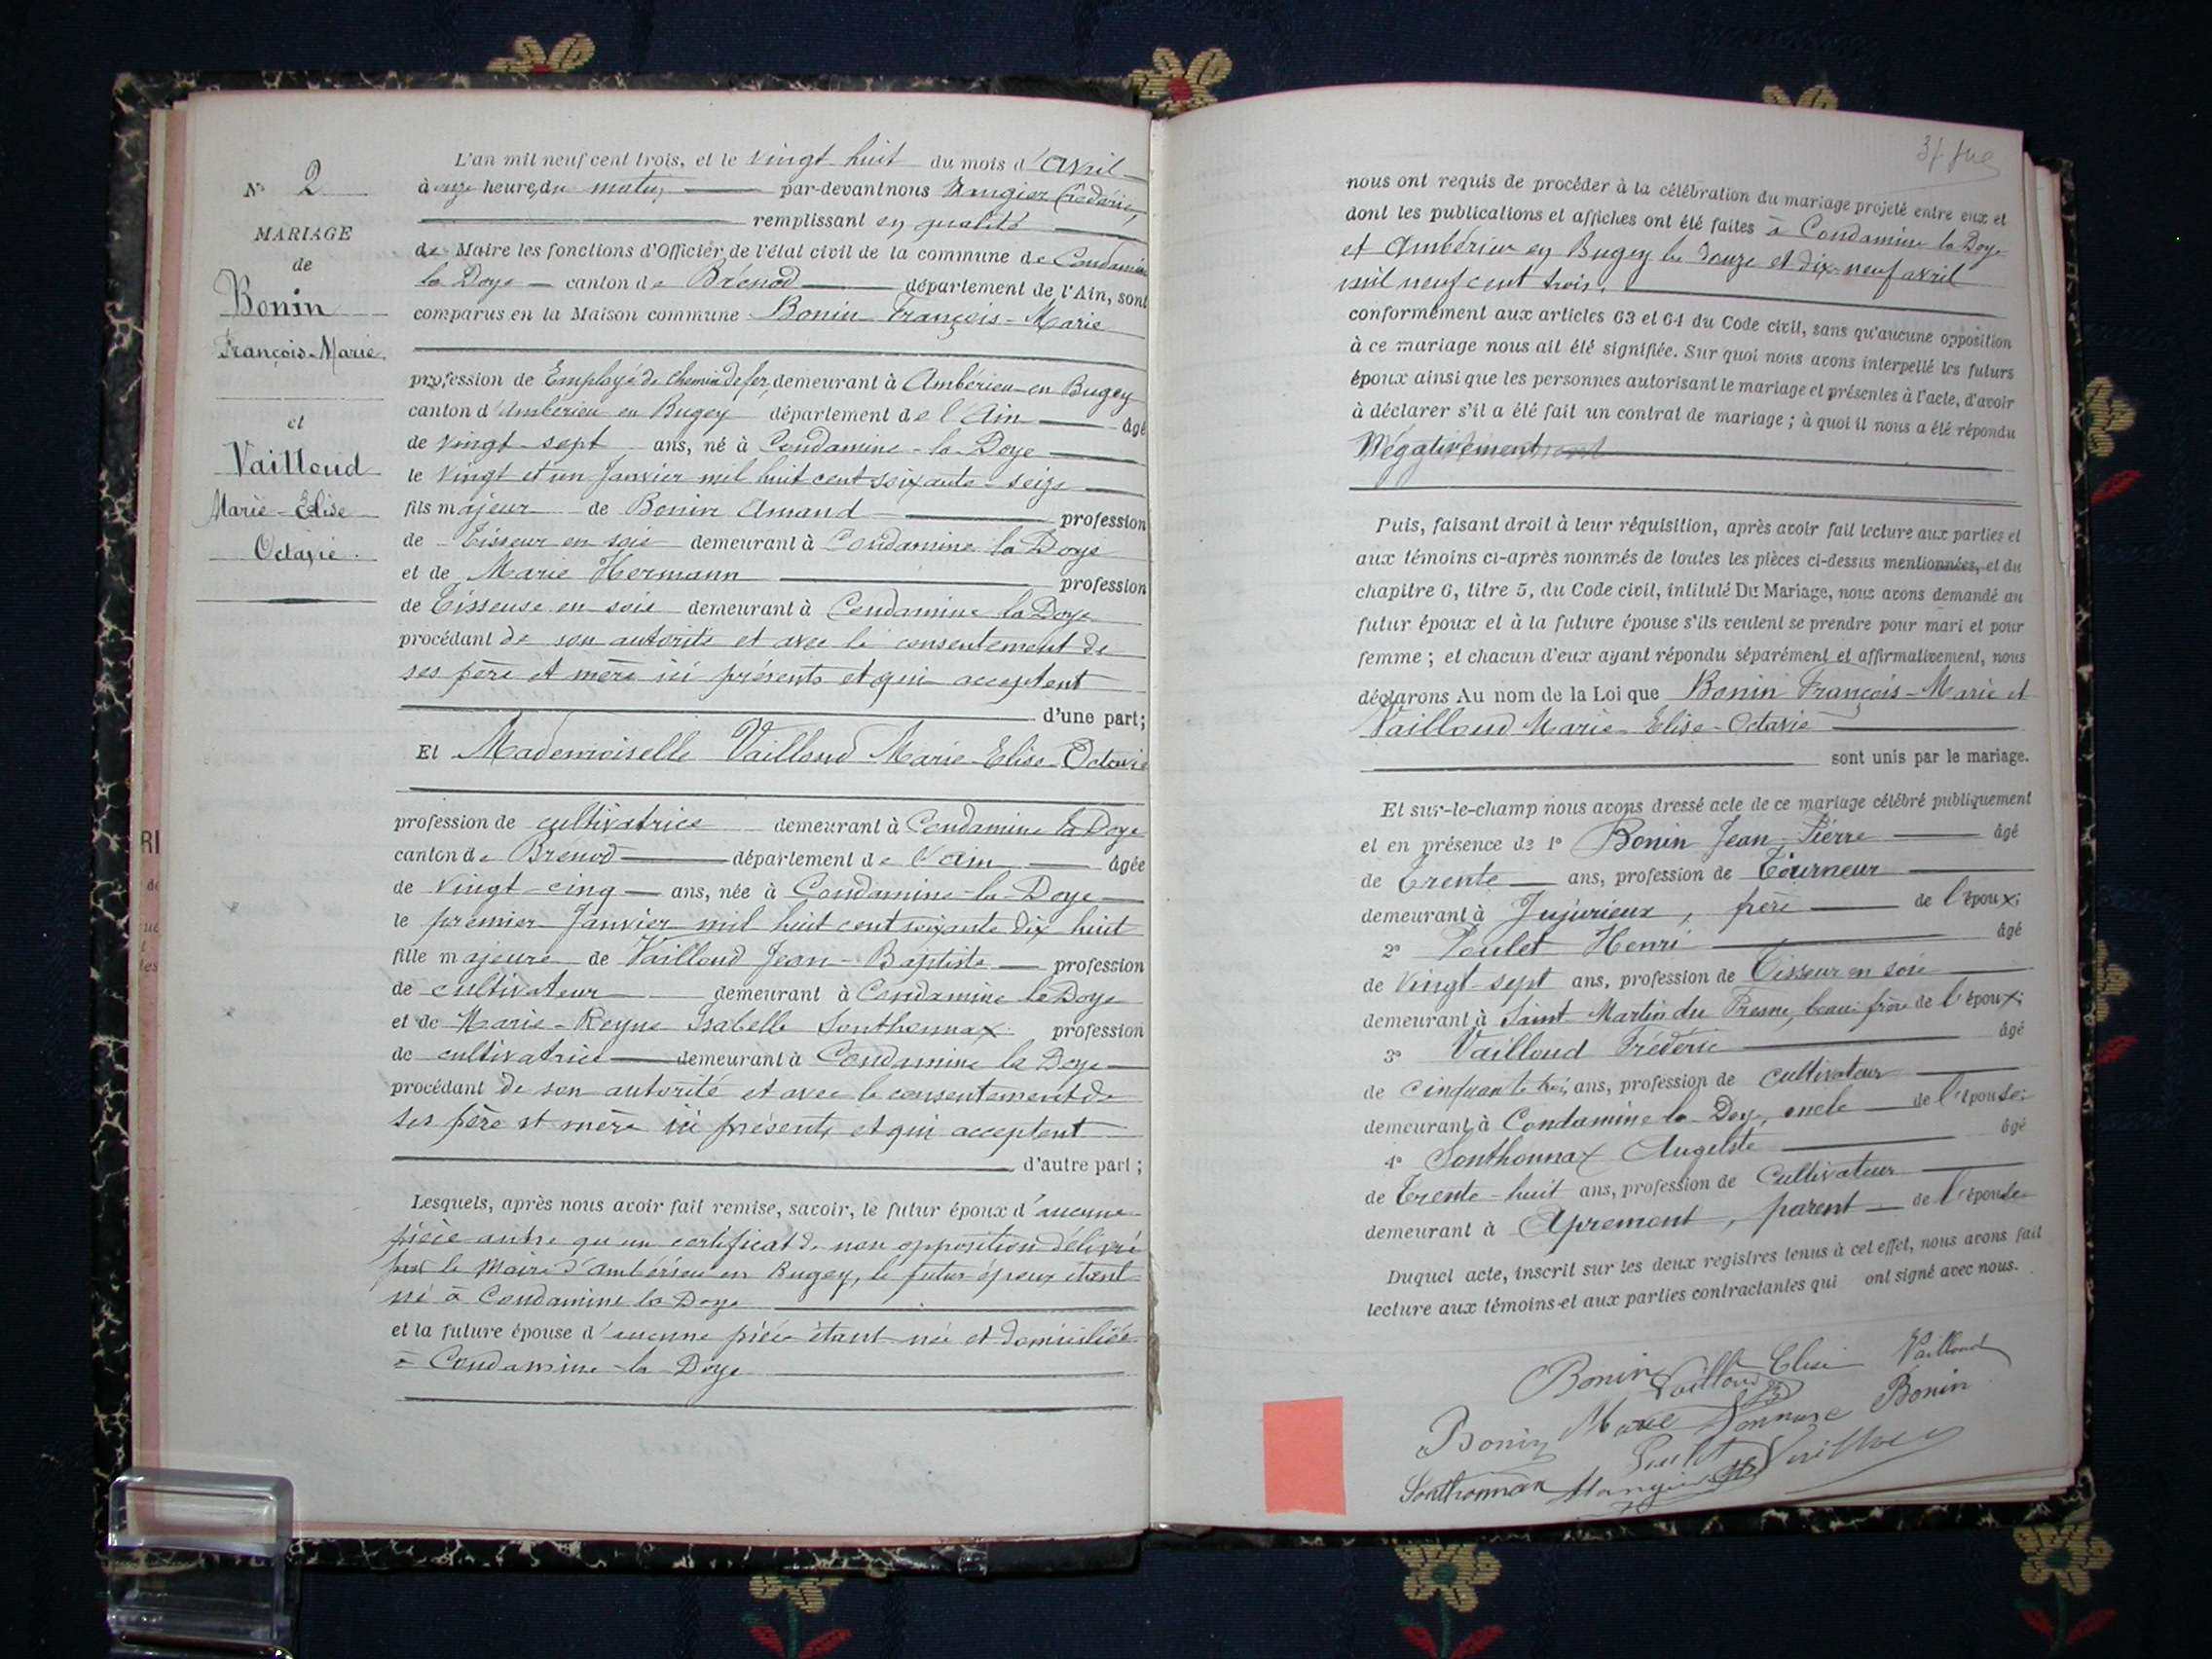 N° 2
MARIAGE
de
Bonin
François-Marie
et
Vailloud
Marie-Elise
Octavie
L'an mil neuf cent trois, et le vingt huit du mois d'Avril
à onze heures du matin par-devant nous Mangier Frédéric
remplissant en qualité
de Maire les fonctions d'Officier de l'état civil de la commune de Condamine
la Doye canton de Brénod département de l'Ain, sont
comparus en la Maison commune Bonin François-Marie
profession de Employé de chemin de fer, demeurant à Ambérieu-en Bugey
canton d'Ambérieu en Bugey département de l'Ain âgé
de vingt-sept ans, né à Condamine-la-Doye
le vingt et un Janvier mil huit cent soixante-seize
fils majeur de Bonin Amand profession
de Tisseur en soie demeurant à Condamine la Doye
et de Marie Hermann profession
de Tisseuse en soie demeurant à Condamine la Doye
procédant de son autorité et avec le consentement de
ses père et mère ici présents et qui acceptent
d'une part;
Et Mademoiselle Vailloud Marie-Elise-Octavie
profession de cultivatrice demeurant à Condamine la Doye
canton de Brenod département de l'Ain âgée
de vingt-cinq ans, née à Condamine-la-Doye
le premier Janvier mil huit cent soixante dix huit
fille majeure de Vailloud Jean-Baptiste profession
de cultivateur demeurant à Condamine la Doye
et de Marie-Reyne Isabelle Sonthonnax profession
de cultivatrice demeurant à Condamine la Doye
procédant de son autorité et avec le consentement de
ses père et mère ici présents et qui acceptent
d'autre part;
Lesquels, après nous avoir fait remise, savoir, le futur époux d'aucune
pièce autre qu'un certificat de non opposition délivré
par le Maire d'Ambérieu en Bugey, le futur époux étant
né à Condamine la Doye
et la future épouse d'aucune pièce étant née et domiciliée
à Condamine-la Doye
nous ont requis de procéder à la célébration du mariage projeté entre eux et
dont les publications et affiches ont été faites à Condamine la Doye
et Ambérieu en Bugey les douze et dix-neuf avril
mil neuf cent trois.
conformément aux articles 63 et 64 du Code civil, sans qu'aucune opposition
à ce mariage nous ait été signifiée. Sur quoi nous avons interpellé les futurs
époux ainsi que les personnes autorisant le mariage et présentes à l'acte, d'avoir
à déclarer s'il a été fait un contrat de mariage; à quoi il nous a été répondu
Négativement
Puis, faisant droit à leur réquisition, après avoir fait lecture aux parties et
aux témoins ci-après nommés de toutes les pièces ci-dessus mentionnées, et du
chapitre 6, titre 5, du Code civil, intitulé Du Mariage, nous avons demandé au
futur époux et à la future épouse s'ils veulent se prendre pour mari et pour
femme; et chacun d'eux ayant répondu séparément et affirmativement, nous
déclarons Au nom de la Loi que Bonin François-Marie et
Vailloud Marie-Elise-Octavie
sont unis par le mariage.
Et sur-le-champ nous avons dressé acte de ce mariage célébré publiquement
et en présence de 1° Bonin Jean-Pierre âgé
de Trente ans, profession de Tourneur
demeurant à Jujurieux, frère de l'époux;
2° Poulet Henri âgé
de vingt-sept ans, profession de Tisseur en soie
demeurant à Saint-Martin du Fresne, beau-frère de l'époux;
3° Vailloud Frédéric âgé
de cinquante trois ans, profession de cultivateur
demeurant à Condamine la Doye, oncle de l'épouse;
4° Sonthonnax Auguste âgé
de Trente-huit ans, profession de cultivateur
demeurant à Apremont, parent de l'épouse
Duquel acte, inscrit sur les deux registres tenus à cet effet, nous avons fait
lecture aux témoins et aux parties contractantes qui ont signé avec nous.
Bonin Vailloud Elise Vailloud
Bonin Marie Bonin
Sonthonnax